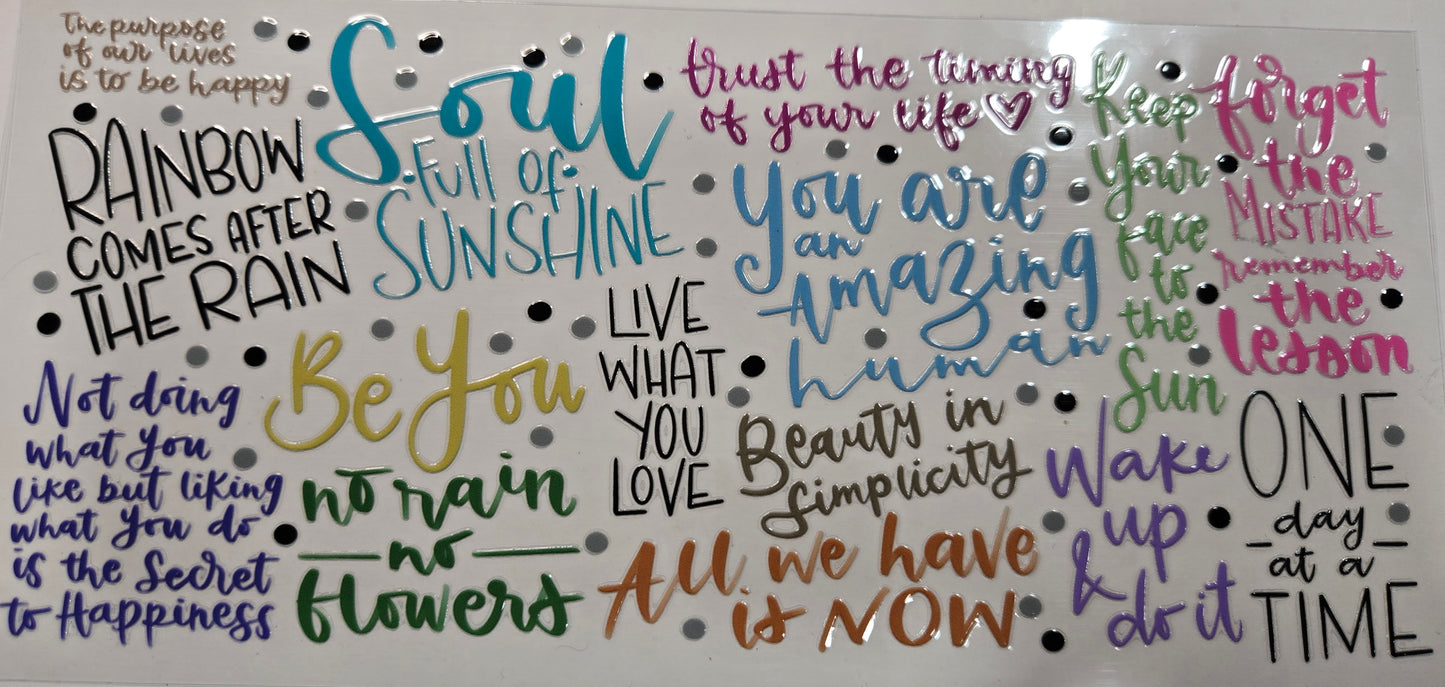 the purpose
of our lives
is to be happy
Soul
full of
SUNSHINE
trust the timing
of your life
Keep
Your
face
to
the
Sun
forget
the
MISTAKE
remember
the
lesson
RAINBOW
COMES AFTER
THE RAIN
You are
an
Amazing
human
Be You
LIVE
WHAT
YOU
LOVE
Not doing
what you
like but liking
what you do
is the Secret
to Happiness
no rain
no
flowers
Beauty in
Simplicity
All we have
is NOW
Wake
up
& do it
ONE
day
at a
TIME